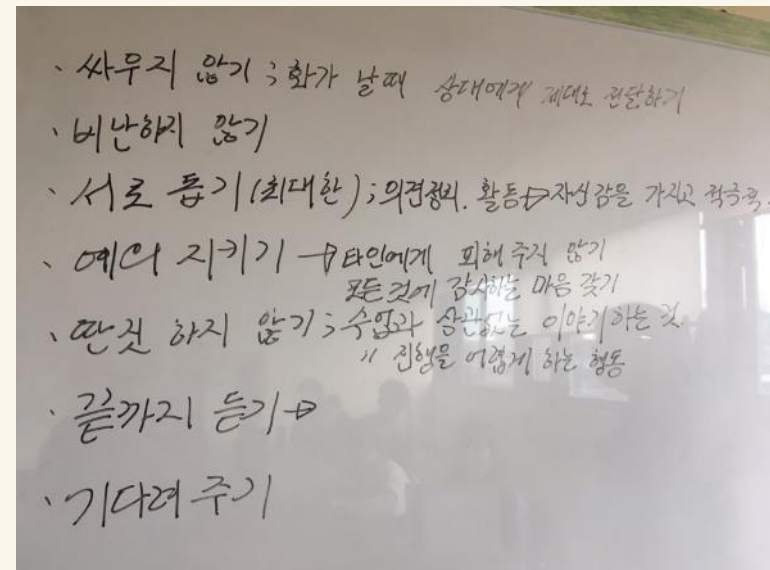 · 싸우지 않기 ; 화가 날때 상대에게 제대로 전달하기
· 비난하지 않기
· 서로 돕기 (최대한) ; 의견정리. 활동 → 자신감을 가지고 적극적
· 예의 지키기 → 타인에게 피해 주지 않기
모든 것에 감사하는 마음 갖기
· 딴짓 하지 않기 ; 수업과 상관없는 이야기하는 것.
〃 진행을 어렵게 하는 행동
· 끝까지 듣기 →
· 기다려 주기